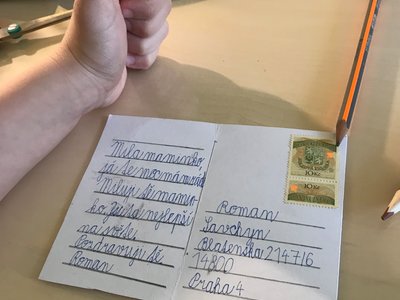 Milá maminko,
já tě moc mám ráda
Miluji tě mamin-
ko. Jsi ta nejlepší
na světe.
Pozdravuji tě
Roman
Roman
Savchyn
Blasenska 214716
14800
Praha 4
10 Kč
10 Kč